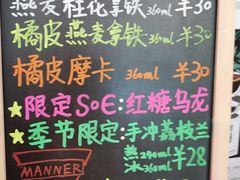 燕麦桂花拿铁 360ml ¥30
橘皮燕麦拿铁 360ml ¥30
橘皮摩卡 360ml ¥30
★限定SOE:红糖乌龙
★季节限定:手冲荔枝兰
热240ml
冰360ml ¥28
MANNER